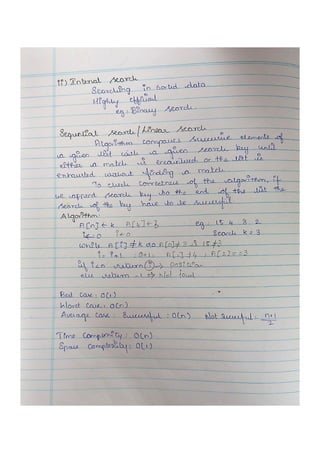 ii) Internal search
Searching in sorted data
Highly efficient
eg. Binary search.
Sequential search / Linear search
Algorithm compares successive elements of
a given list with a given search key until
either a match is encountered or the list is
exhausted without finding a match
To check correctness of the algorithm, if
we append search key to the end of the list the
search of the key have to be successful
Algorithm:
A[n] ← k A[4] ← 3 eg: 15 4 3 2
i ← 0 i ← 0 Search k = 3
while A[i] ≠ k do A[0] ≠ 3 15 ≠ 3
i = i+1 0+1 A[1] ≠ 4 A[2] = 3
if i < n return (i) → position
else return -1 → Not found
Best case: O(1)
Worst case: O(n)
Average case: Successful: O(n) Not Successful: n+1/2
Time Complexity: O(n)
Space Complexity: O(1)